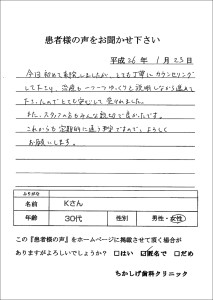 患者様の声をお聞かせ下さい
平成26年 1月25日
今日初めて来院しましたが、とても丁寧にカウンセリング
してたり、治療も一つ一つゆっくりと説明しながら進めて
たったのでとても安心して受けれました。
また、スタッフの方もみんな親切で良かったです。
これからも定期的に通う予定ですので、よろしく
お願いします。
ふりがな
名前 Kさん
年齢 30代 性別 男性・女性
この『患者様の声』をホームページに掲載させて頂く場合が
ありますがよろしいでしょうか? □はい ☑匿名で □だめ
ちかしげ歯科クリニック